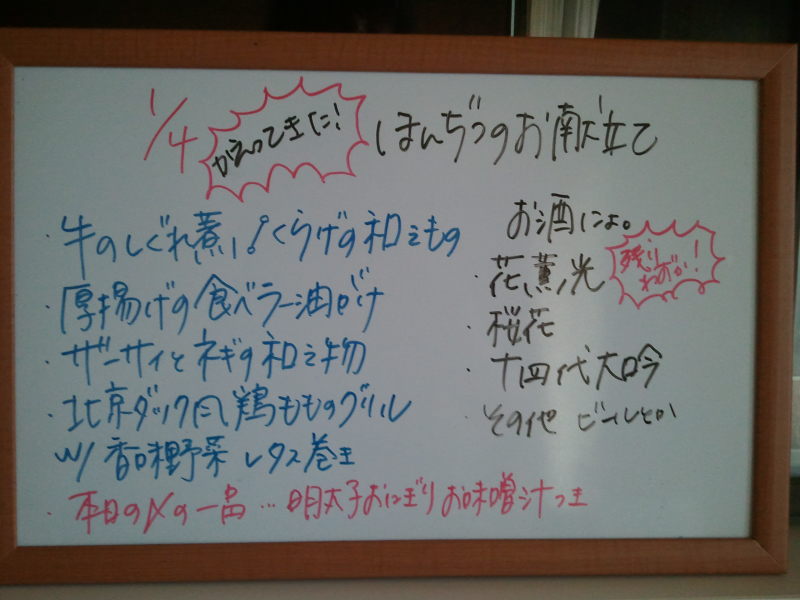 1/4 かえってきた! ほんじつのお献立て
・牛のしぐれ煮 ・くらげの和えもの
・厚揚げの食べラー油がけ
・ザーサイとネギの和え物
・北京ダック風鶏もものグリル
w/ 香味野菜 レタス巻き
・本日の〆の一品…明太子おにぎりお味噌汁つき
お酒には。
・花薫光 残りわずか!
・桜花
・十四代大吟
・その他 ビールとか